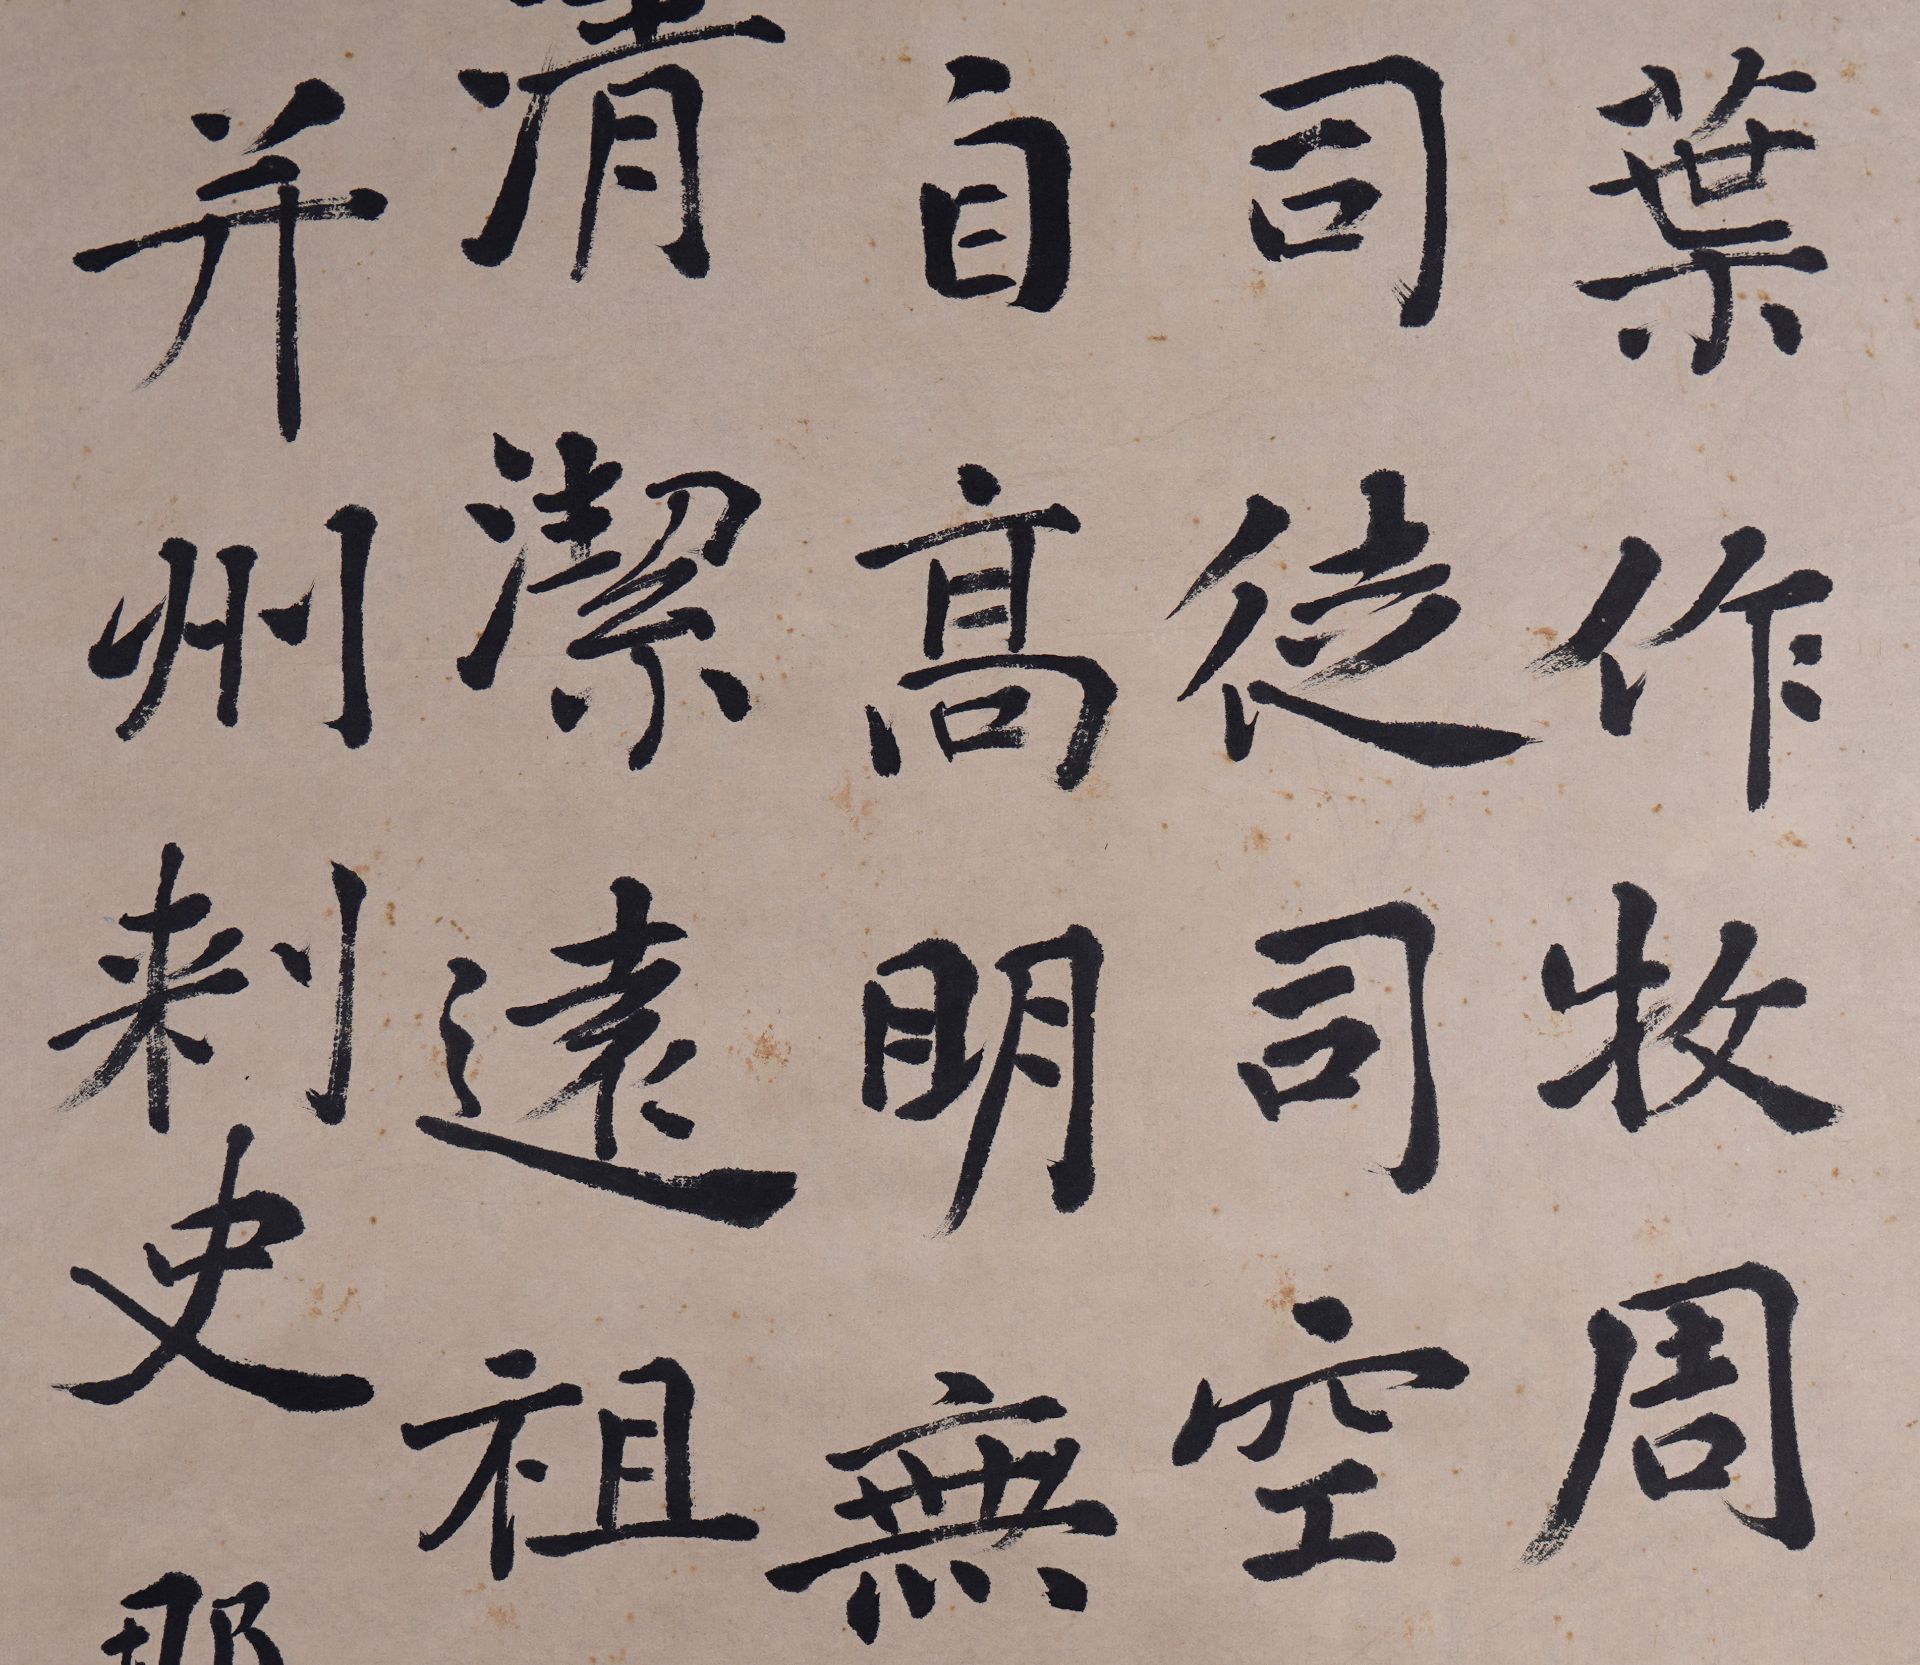 葉作牧周
司徒司空
自高明無
清潔遠祖
并州刺史那